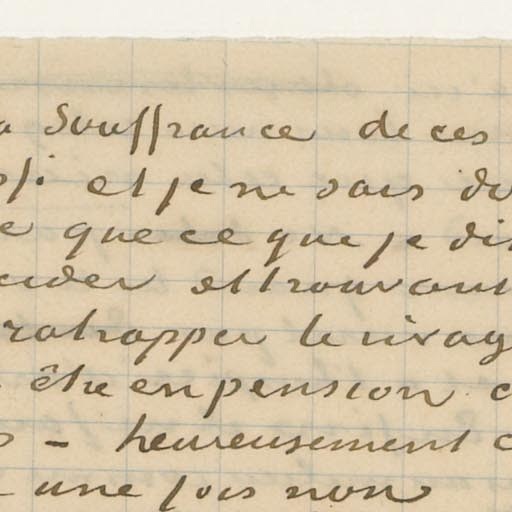 souffrance de ces
et je ne sais
que ce que je dis
et trouvant
ratrapper le rivag
être en pension
– heureusement
une fois non